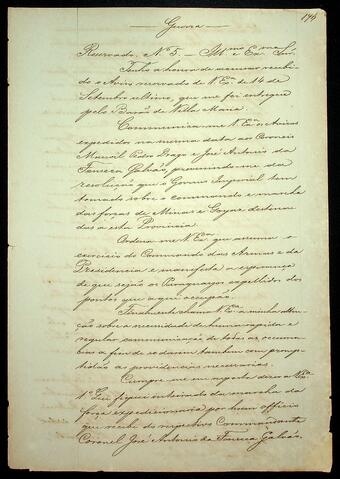 Guerra
146
Reservado. Nº 5 — Illmo e Exmo Snr.
Tenho a honra de accusar recebi-
do o Aviso reservado de V. Exª de 14 de
Setembro ultimo, que me foi entregue
pelo Barão de Villa Maria.
Communica-me V. Exª os Avisos
expedidos na mesma data aos Coroneis
Manoel Pedro Drago e José Antonio da
Fonseca Galvão, prevenindo-me da
resolução que o Governo Imperial tem
tomado sobre o commando e marcha
das forças de Minas e Goyaz destina-
das a esta Provincia.
Ordena-me V. Exª que assuma o
exercicio do Commando das Armas e da
Presidencia e manifesta a esperança
de que sejão os Paraguayos expellidos dos
pontos que aqui occupão.
Finalmente chama V. Exª a minha atten-
ção sobre a necessidade de huma rapida e
regular communicação de todas as occurren-
cias a fim de se darem tambem com promp-
tidão as providencias necessarias.
Cumpre-me em resposta dizer a V. Exª
1º Que fiquei inteirado da marcha da
força expedicionaria por hum officio
que recebi do respectivo Commandante
Coronel José Antonio da Fonseca Galvão.